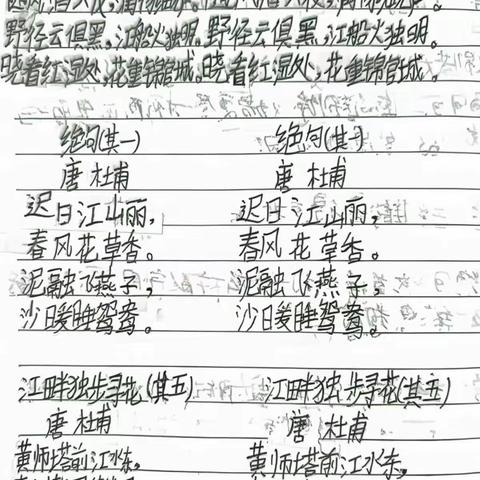 野径云俱黑,江船火独明。野径云俱黑,江船火独明。
晓看红湿处,花重锦官城。晓看红湿处,花重锦官城。
绝句(其一) 绝句(其一)
唐 杜甫 唐 杜甫
迟日江山丽, 迟日江山丽,
春风花草香。 春风花草香。
泥融飞燕子, 泥融飞燕子,
沙暖睡鸳鸯。 沙暖睡鸳鸯。
江畔独步寻花(其五) 江畔独步寻花(其五)
唐 杜甫 唐 杜甫
黄师塔前江水东, 黄师塔前江水东,